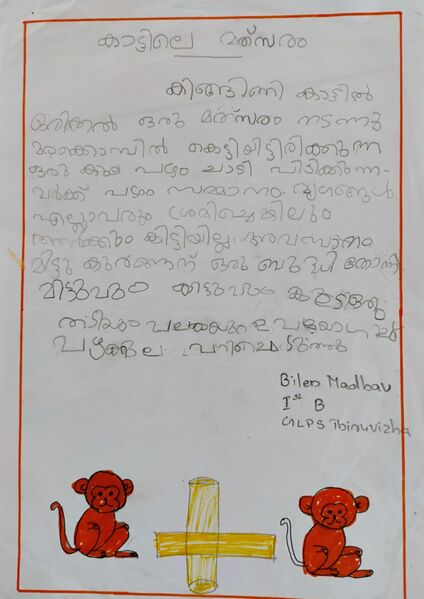 കാട്ടിലെ മത്സരം
കിങ്ങിണി കാട്ടിൽ
ഒരിക്കൽ ഒരു മത്സരം നടന്നു
മരക്കൊമ്പിൽ കെട്ടിയിട്ടിരിക്കുന്ന
ഒരു കുല പഴം ചാടി പിടിക്കുന്ന-
വർക്ക് പഴം സമ്മാനം. മൃഗങ്ങൾ
എല്ലാവരും ശ്രമിച്ചെങ്കിലും
ആർക്കും കിട്ടിയില്ല. അവസാനം
മിട്ടു കുരങ്ങന് ഒരു ബുദ്ധി തോന്നി.
മിട്ടുവും കിട്ടുവും
തടിയും പലകയും
പഴക്കുല പറിച്ചെടുത്തു
Bilen Madhav
Ist B
GLPS Thiruvizha